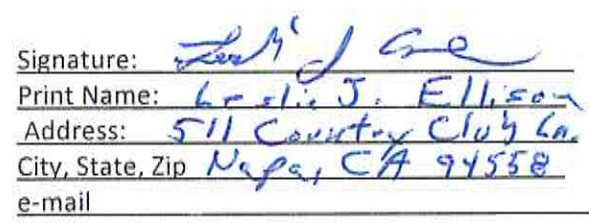 Signature:
Print Name: Leslie J. Ellison
Address: 511 Country Club Ln.
City, State, Zip Napa, CA 94558
e-mail